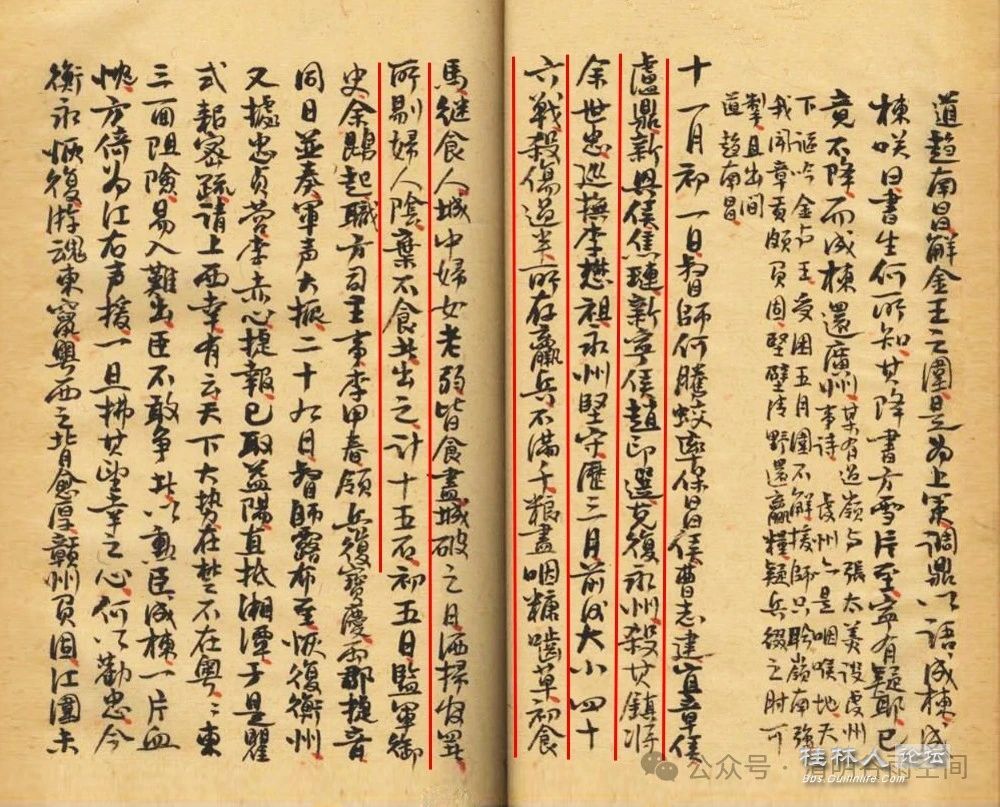 道趨南昌解金王之圍是为上策調鼎以語成棟成
棟咲曰書生何所知其降書方雪片至寧有疑耶已
竟不降而成棟還廣州某有過嶺与張太美設虔州
事詩 虔州六是咽喉地大
下謳吟金与王受困五月圍不解援師只聆嶺南強
我聞章貢頗負固堅壁清野還羸糧疑兵綴之肘可
掣直出間
道趨南昌
十一月初一日督師何騰蛟疏保昌侯曹志建宜章侯
盧鼎新興侯焦璉新寧侯趙印選克復永州殺其鎮將
余世忠巡撫李懋祖永州堅守歷三月前後大小四十
六戰殺傷過半所存羸兵不滿千粮盡咽糠嚙草初食
馬繼食人城中婦女老弱皆食盡城破之日洒掃收
所剔婦人陰棄不食共出之計十五石初五日監軍御
史余鵾起職方司主事李甲春領兵復寳慶兩郡捷音
同日並奏軍声大振二十九日督師露布至恢復衡州
又據忠貞營李赤心提報已取益陽直抵湘潭于是瞿
式耜密疏請上西幸有云天下大勢在楚不在粵〻東
三面阻險易入難出臣不敢争共以勲臣成棟一片血
忱方倚为江右声援一旦拂其望幸之心何以勸忠今
衡永恢復游魂東竄粵西之背愈厚贛州負固江圍未
桂林人论坛
Bbs.Guilinlife.com
公众号
空间